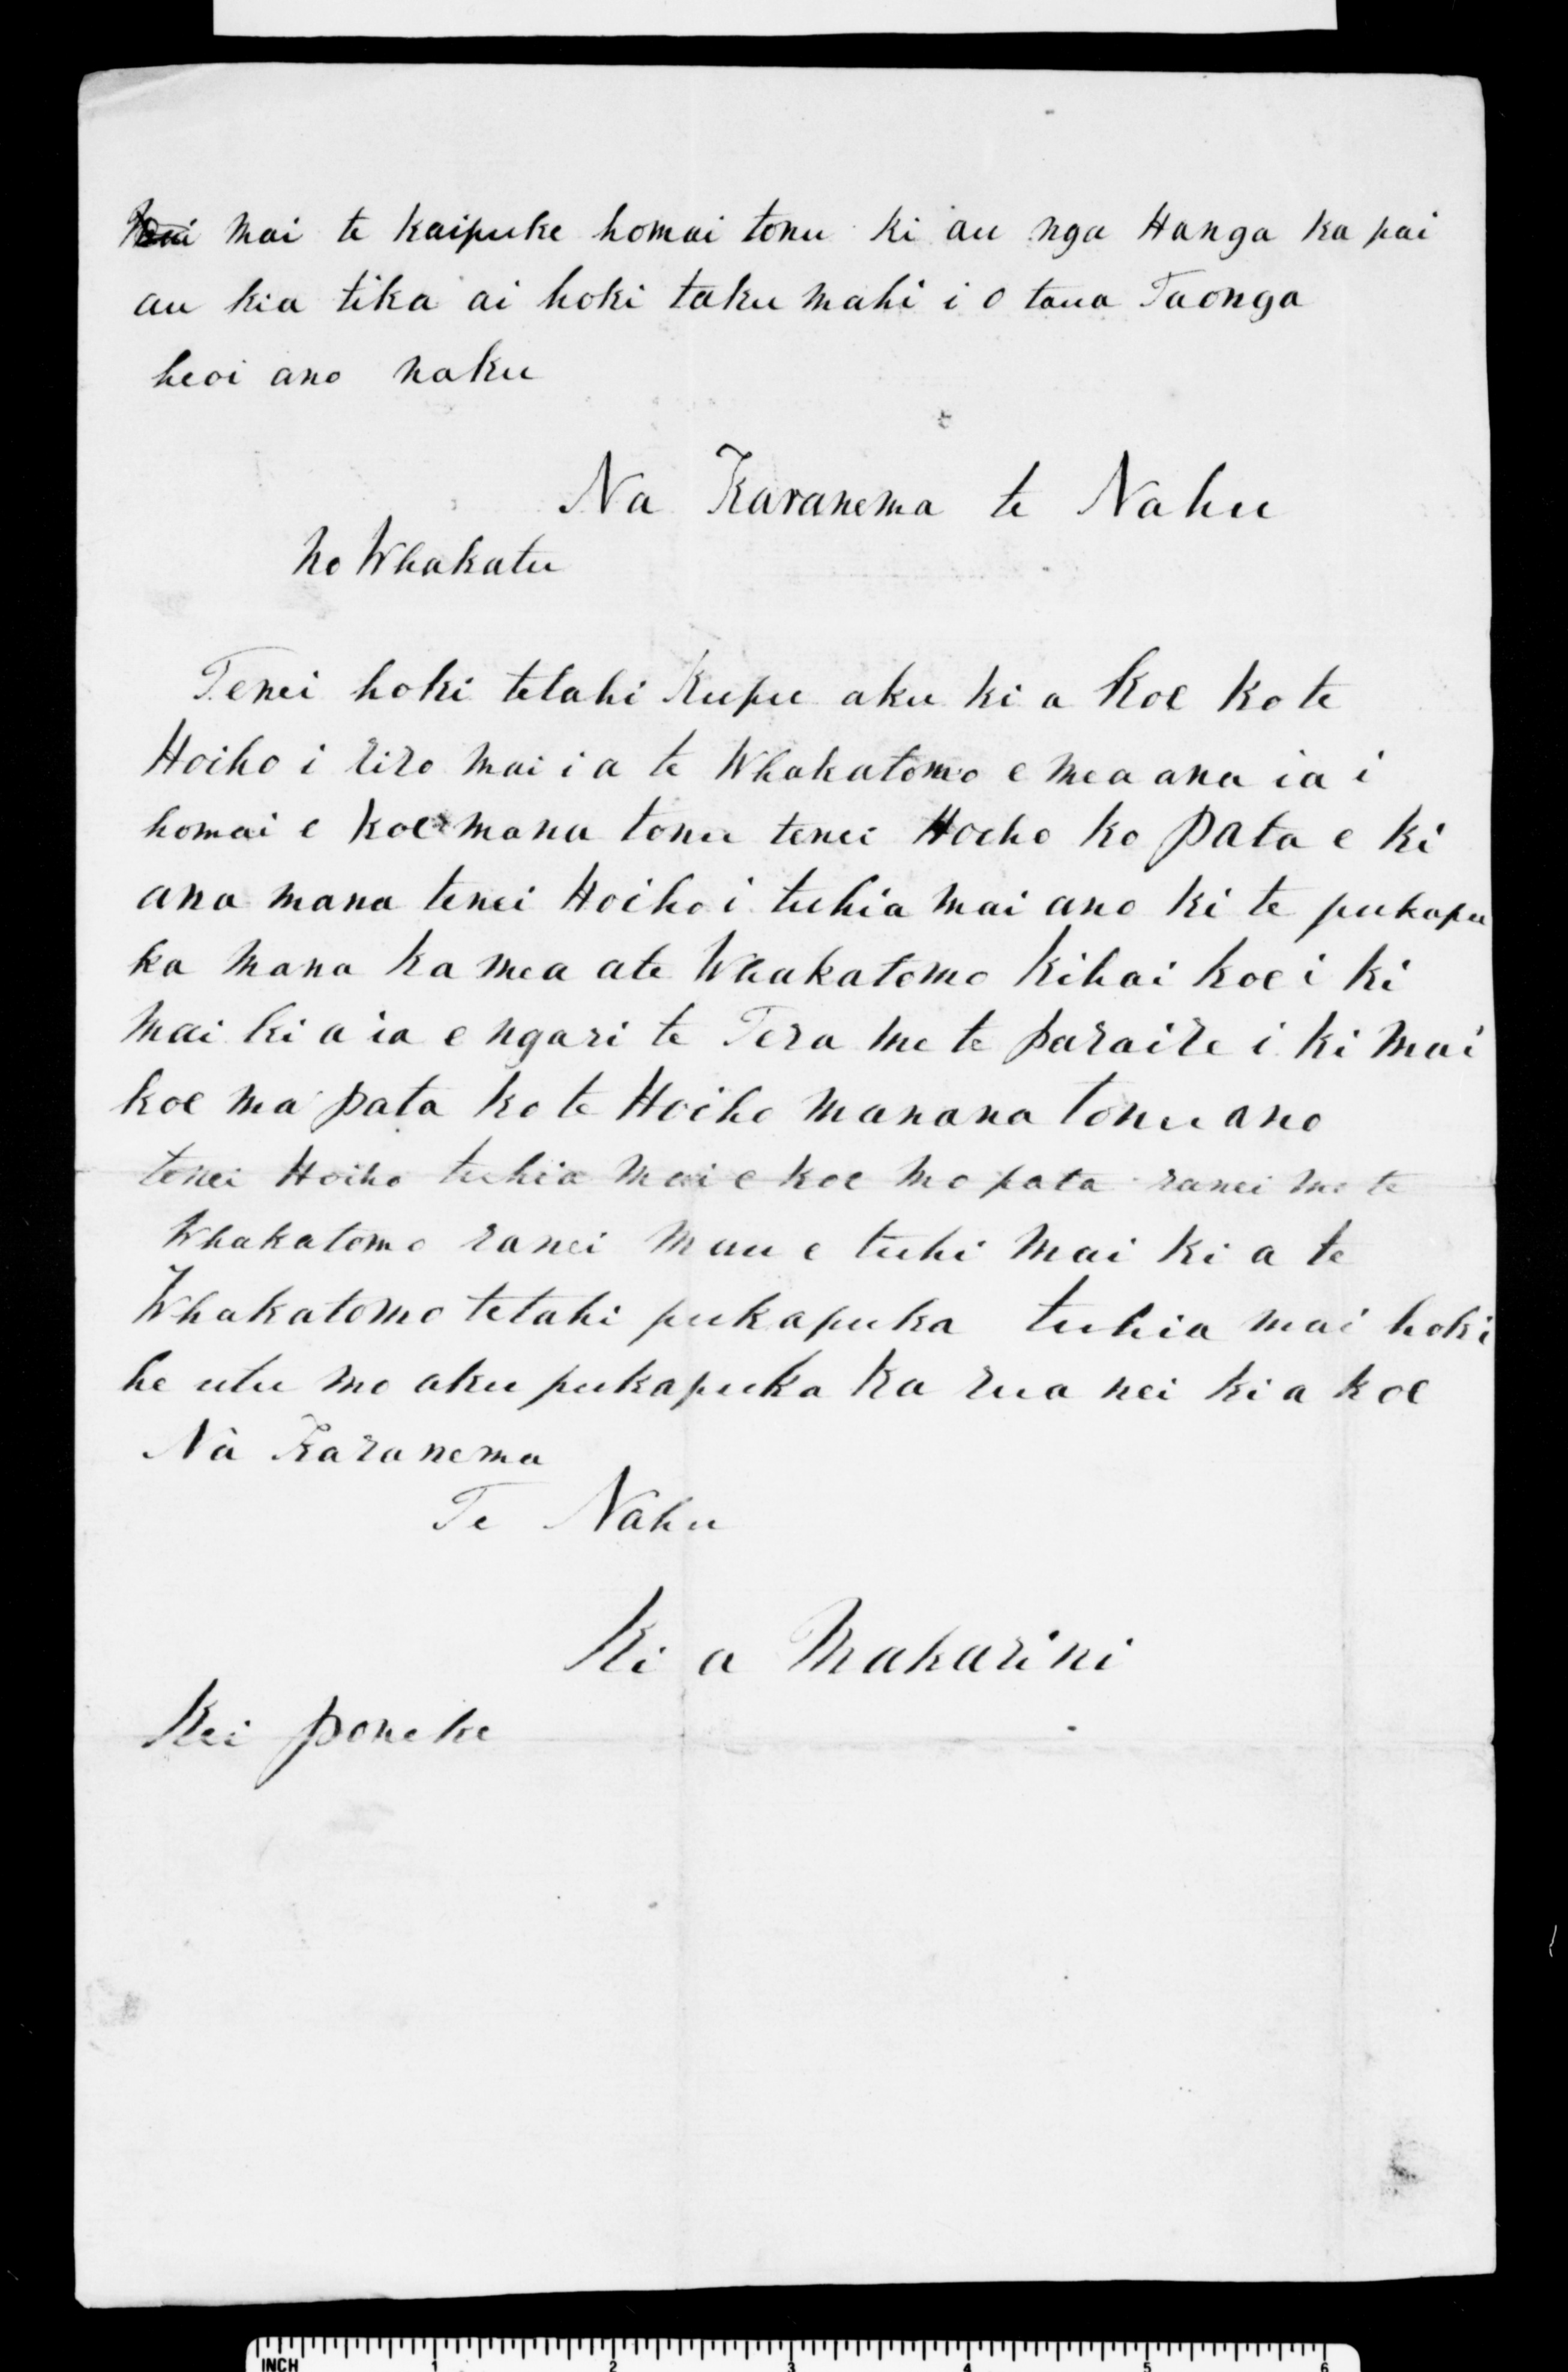 mai te kaipuke homai tonu ki au nga Hanga ka pai
au kia tika ai hoki taku mahi i o taua Taonga
heoi ano naku
Na Karanema te Nahu
No Whakatu
Tenei hoki tetahi Kupu aku ki a Koe ko te
Hoiho i riro mai i a te Whakatomo e mea ana ia i
homai e koe mana tonu tenei Hoeho ko Pata e ki
ana mana tenei Hoiho i tuhia mai ano ki te pukapu
ka mana ka mea ate Whakatomo Kihai koe i ki
mai ki a ia e ngari te Tera me te Paraire i ki mai
koe ma Pata ko te Hoiho manana tonu ano
tenei Hoiho tuhia mai e koe mo pata ranei mo te
Whakatomo ranei mau e tuhi mai ki a te
Whakatomo tetahi pukapuka tuhia mai hoki
he utu mo aku pukapuka ka rua nei ki a koe
Na Karanema
Te Nahu
Ki a Makarini
Kei Poneke
INCH 1 2 3 4 5 6